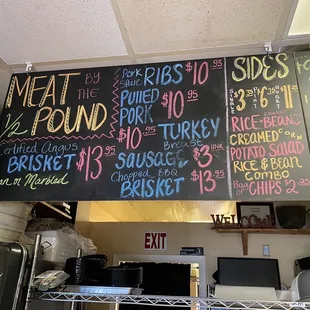 MEAT BY THE
1/2 POUND
Certified Angus
BRISKET $13.95
Lean or Marbled
Pork RIBS $10.95
Style
PULLED $10.95
PORK
$10.95
TURKEY
Breast
SAUSAGE $3.95
Chopped BBQ
BRISKET $13.95
SIDES
RICE & BEANS
CREAMED corn
POTATO SALAD
RICE & BEAN
COMBO
BAG of CHIPS $2.95
EXIT
WEL